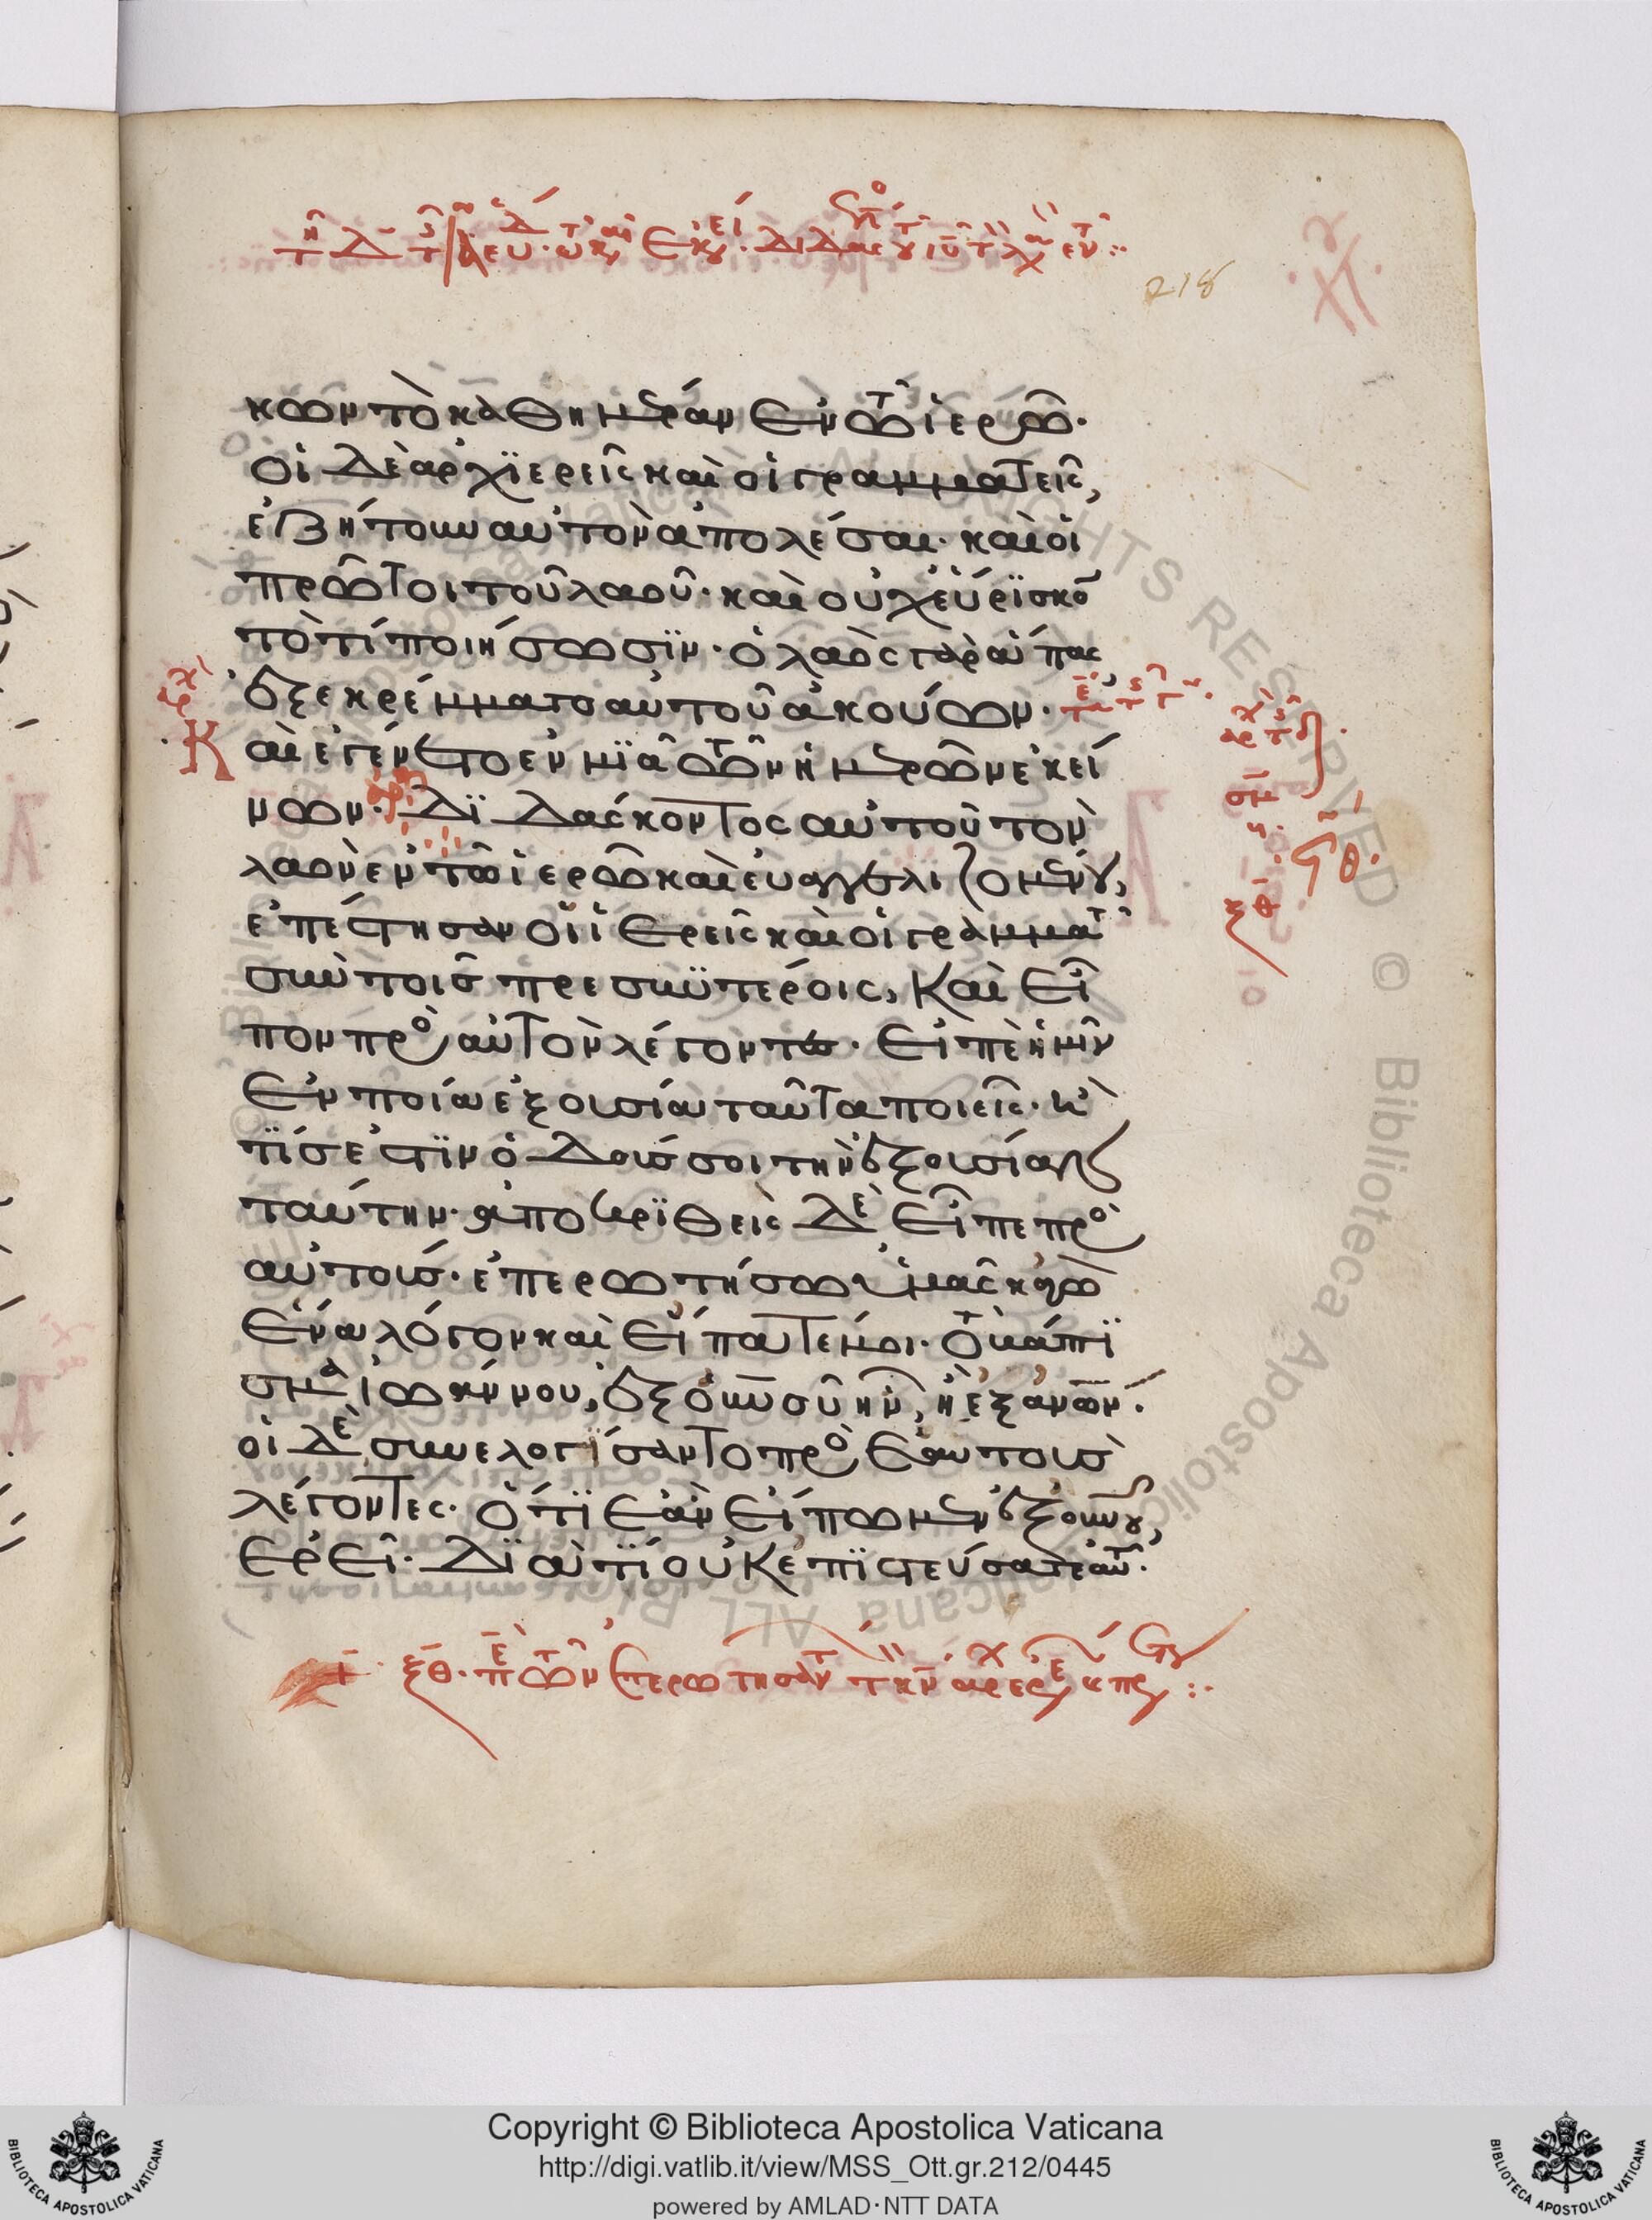 218
κῶν τὸ καθημέραν ἐν τῶ ἱερῶ·
οἱ δὲ ἀρχϊερεῖς καὶ οἱ γραμματεῖς,
ἐζήτουν αὐτὸν ἀπολέσαι· καὶ οἱ
πρῶτοι τοῦ λαοῦ· καὶ οὐχ εὕρϊσκο
τὸ τί ποιήσωσϊν· ὁ λαὸς γὰρ ἅπας
ἐξεκρέμματο αὐτοῦ ἀκούων·
Καὶ ἐγένετο ἐν μϊᾶ τῶν ἡμερῶν ἐκεί
νων· Δϊδάσκοντος αὐτοῦ τὸν
λαὸν ἐν τῶ ἱερῶ καὶ εὐαγγελιζομένου,
ἐπέστησαν οἱ ἱερεῖς καὶ οἱ γραμματ
σὺν τοῖς πρεσβϋτέροις, Καὶ εἶ
πον πρὸ αὐτὸν λέγοντες· Εἰπὲ ἡμῖν
ἐν ποία ἐξουσία ταῦτα ποιεῖς· ἢ
τϊς ἐστϊν ὁ δούς σοι τὴν ἐξουσίαν
ταύτην· ἀποκρϊθεὶς δὲ εἶπε πρὸ
αὐτούς· ἐπερωτήσω ὑμᾶς κἀγὼ
ἕνα λόγον καὶ εἴπατέ μοι· τὸ βάπτϊ
σμα ἰωάννου, ἐξ οὐνοῦ ἦν, ἢ ἐξ ἀνων·
οἱ δὲ συνελογϊσαντο πρὸ ἑαυτοὺς
λέγοντες· Ὅτϊ ἐὰν εἴπωμεν ἐξ οὐνου,
ἐρεῖ· Δϊατϊ οὐκ ἐπϊστεύσατε αὐτ·
ξθ· π τῶν ἐπερωτησαντ τ κν ἀρχερε κ πρ
Copyright © Biblioteca Apostolica Vaticana
http://digi.vatlib.it/view/MSS_Ott.gr.212/0445
powered by AMLAD·NTT DATA
BIBLIOTECA APOSTOLICA VATICANA
BIBLIOTECA APOSTOLICA VATICANA